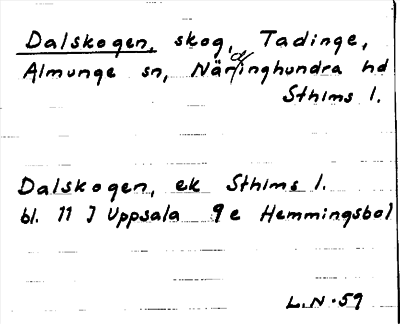 Dalskogen, skog, Tadinge,
Almunge sn, Närdinghundra hd
Sthlms l.
Dalskogen, ek Sthlms l.
bl. 11 J Uppsala 9e Hemmingsbol
L.N.59